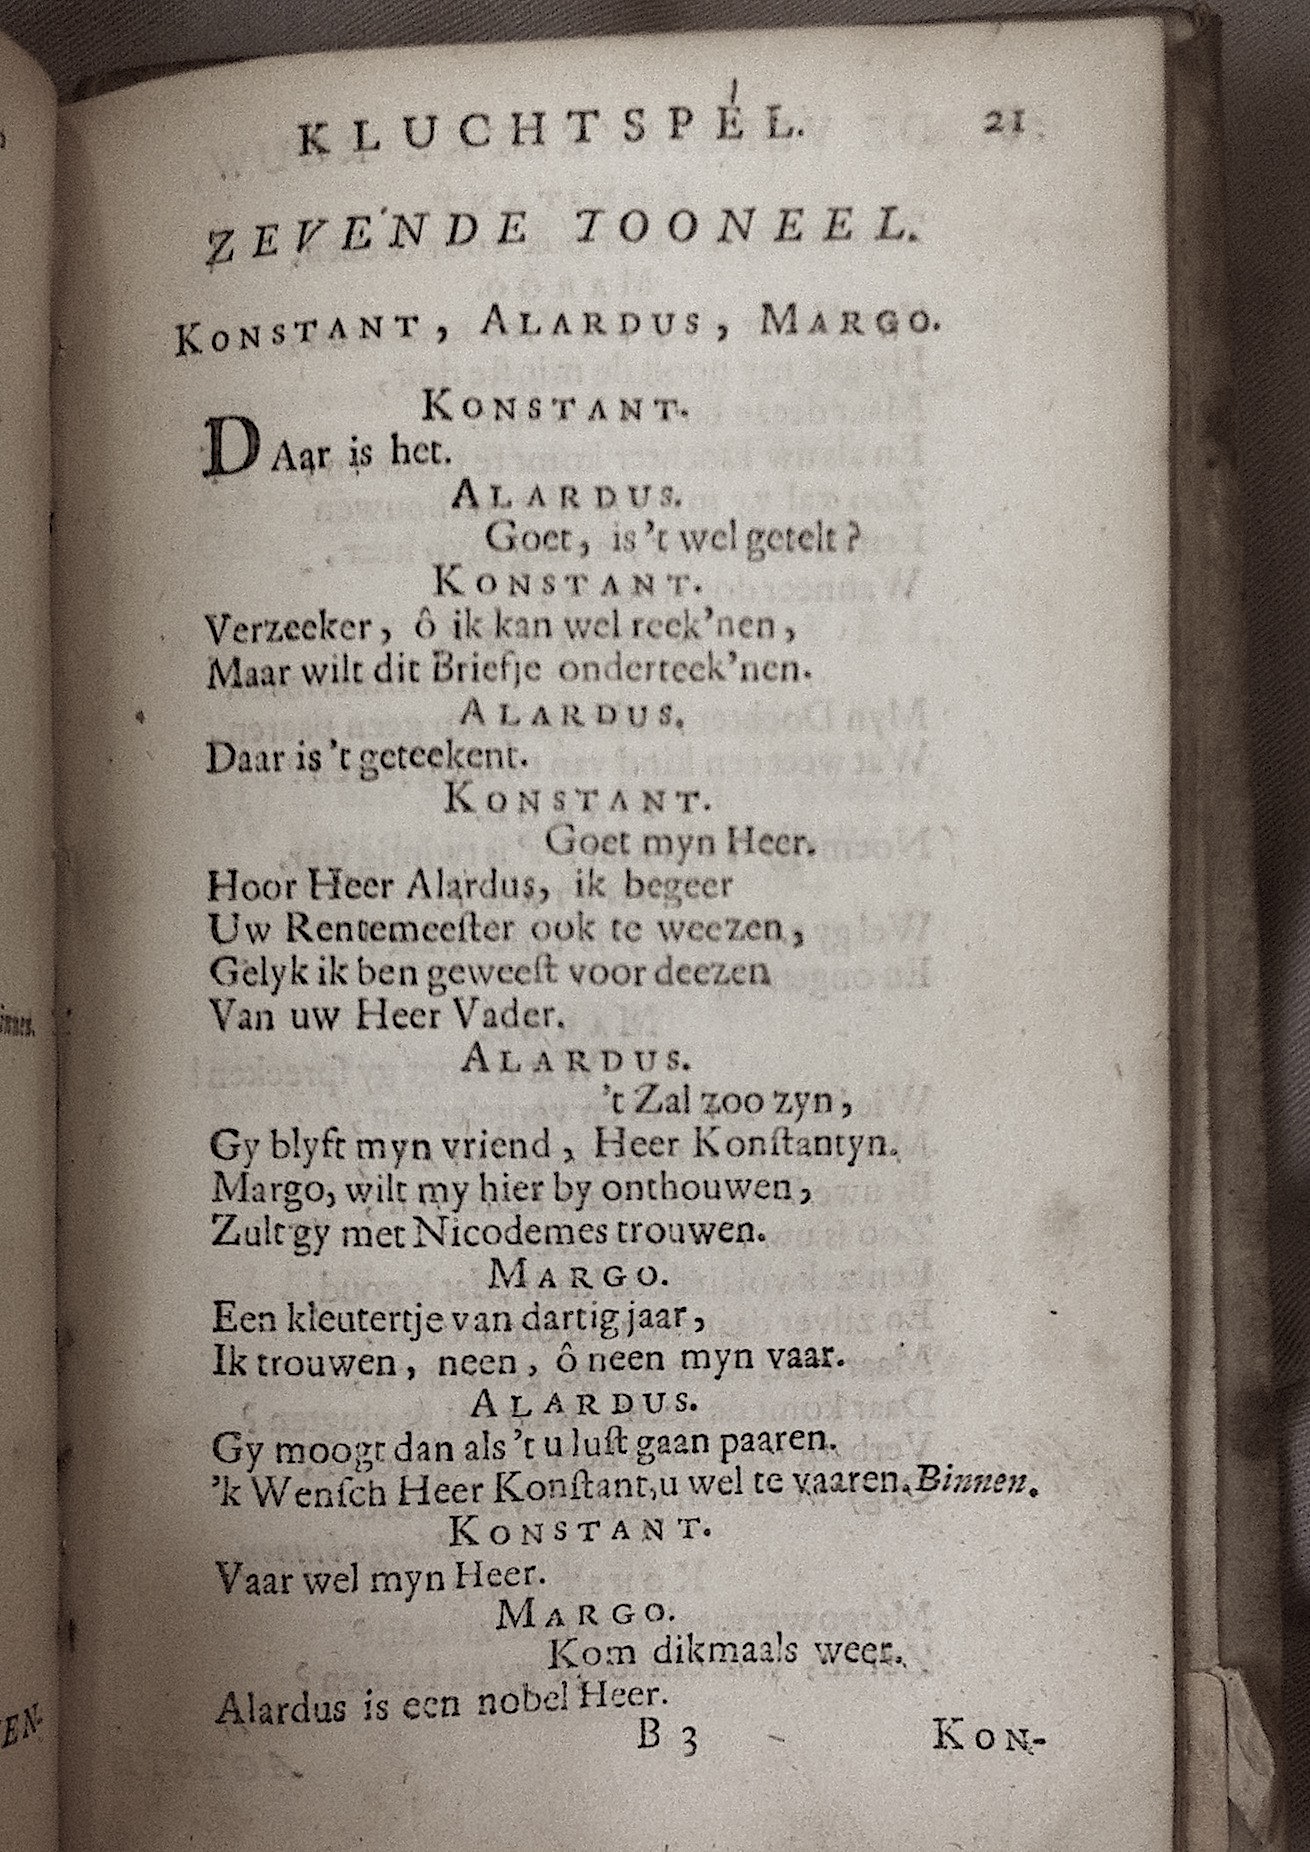 KLUCHTSPEL. 21
ZEVENDE TOONEEL.
KONSTANT, ALARDUS, MARGO.
KONSTANT.
DAar is het.
ALARDUS.
Goet, is 't wel getelt?
KONSTANT.
Verzeeker, ô ik kan wel reek'nen,
Maar wilt dit Briefje onderteek'nen.
ALARDUS.
Daar is 't geteekent.
KONSTANT.
Goet myn Heer.
Hoor Heer Alardus, ik begeer
Uw Rentemeeſter ook te weezen,
Gelyk ik ben geweeſt voor deezen
Van uw Heer Vader.
ALARDUS.
't Zal zoo zyn,
Gy blyft myn vriend, Heer Konſtantyn.
Margo, wilt my hier by onthouwen,
Zult gy met Nicodemes trouwen.
MARGO.
Een kleutertje van dartig jaar,
Ik trouwen, neen, ô neen myn vaar.
ALARDUS.
Gy moogt dan als 't u luſt gaan paaren.
'k Wenſch Heer Konſtant, u wel te vaaren. Binnen.
KONSTANT.
Vaar wel myn Heer.
MARGO.
Kom dikmaals weer.
Alardus is een nobel Heer.
B 3 KON-